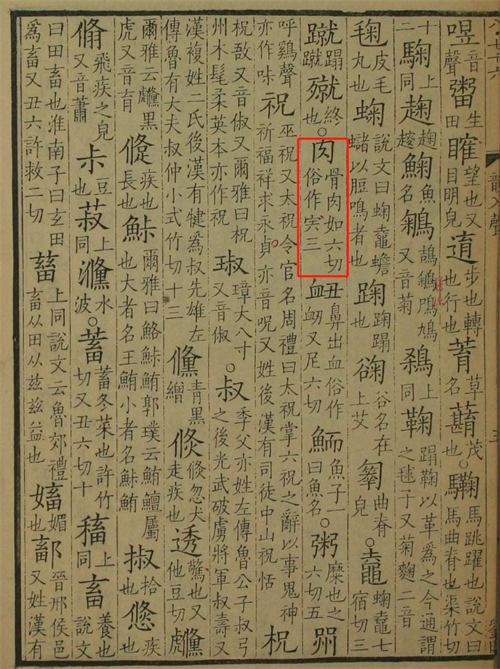 音聲 睢望也又目明皃 逳步也轉也行也 驧馬跳躍也說文曰馬曲脊也渠竹切
十二 上同 又音菊 上同 鞠蹋鞠以革為之今通謂之毬子又菊麴二音
毱皮毛丸也 說文曰 以脰鳴者也 踘踘蹋 谷名在上艾 曲脊皃 鼀 七宿切三
蹴蹴蹋也 殧終也 肉骨肉如六切俗作宍三 衄鼻出血俗作衂又足六切 鮞魚子一曰魚名 粥糜也之六切五 喌
呼鷄聲亦作咮 祝巫祝又太祝令官名周禮曰太祝掌六祝之辭以事鬼神祈福祥求永貞亦音呪又姓後漢有司徒中山祝恬 柷
柷敔又音俶又爾雅曰柷州木髦柔英本亦作祝 琡璋大八寸又音俶 叔季父亦姓左傳魯公子叔弓之後光武破虜將軍叔壽又
漢複姓二氏後漢有犍為叔先雄左傳魯有大夫叔仲小式竹切十三 儵青黑繒 倏倏忽犬走疾也 透驚也又他豆切 虪
爾雅云虪黑虎又音育 疾也長也 鮛爾雅云鮥鮛鮪郭璞云鮪鱣屬也大者名王鮪小者名鮛鮪 掓拾也 疾也
翛飛疾之皃又音蕭 尗豆也 菽上同 水波 蓄蓄冬菜也許竹切又丑六切十 稸上同 畜養也說文
曰田畜也淮南子曰玄田為畜又丑六許救二切 上同說文云魯郊禮畜从田从茲茲益也 媚也 鄐晉邢侯邑也又姓漢有